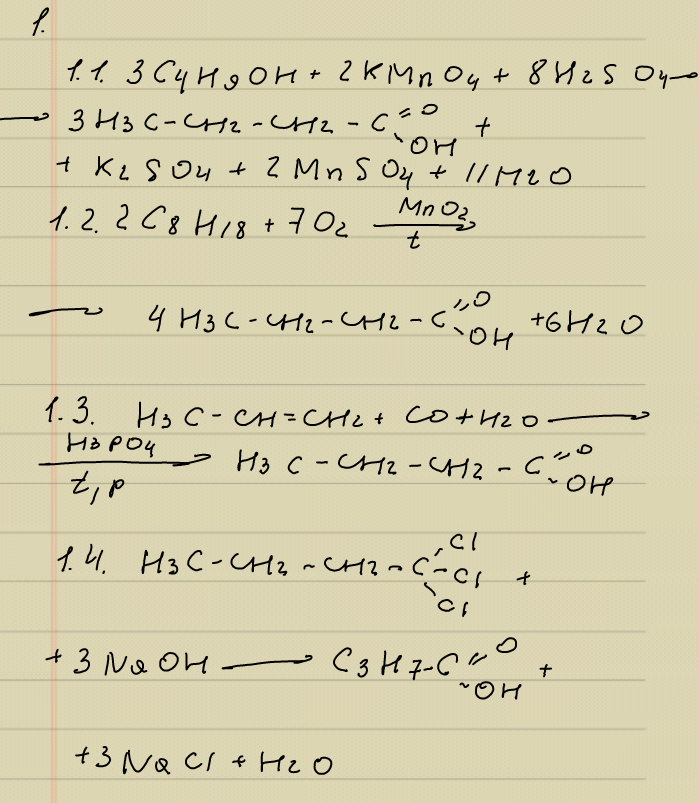 1.
1.1. 3C4H9OH + 2KMnO4 + 8H2SO4 →
→ 3H3C-CH2-CH2-C=O +
OH
+ K2SO4 + 2MnSO4 + 11H2O
MnO2
1.2. 2C8H18 + 7O2 →
t
→ 4H3C-CH2-CH2-C=O +6H2O
OH
1.3. H3C-CH=CH2 + CO+H2O →
H3PO4
→ H3C-CH2-CH2-C=O
t, p OH
Cl
1.4. H3C-CH2-CH2-C-Cl +
Cl
+ 3NaOH → C3H7-C=O +
OH
+3NaCl + H2O